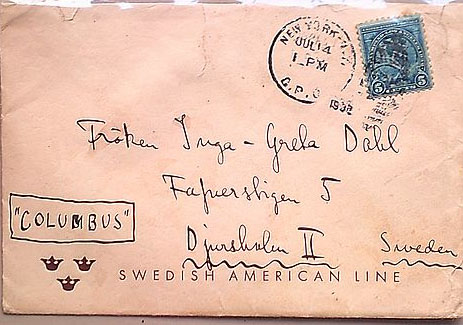 NEW YORK, N.Y.
JUL 14
1 PM
G.P.O.
1932
5 5
Fröken Inga-Greta Dahl
5
"COLUMBUS"
Djursholm II Sweden
SWEDISH AMERICAN LINE